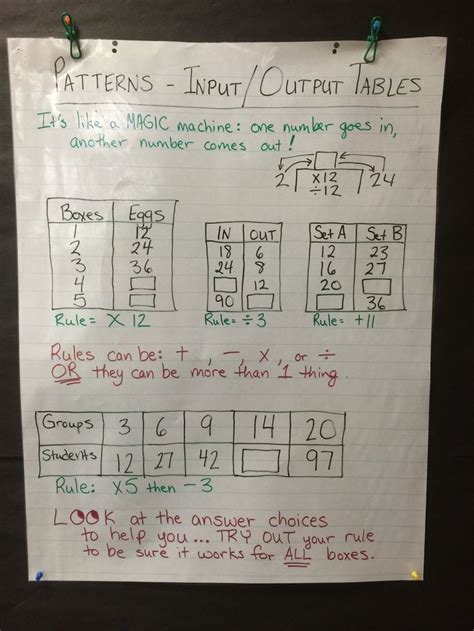 PATTERNS - INPUT/OUTPUT TABLES
It's like a MAGIC machine: one number goes in,
another number comes out!
2 x12 24
÷12
Boxes Eggs
1 12
2 24
3 36
4
5
Rule= x 12
IN OUT
18 6
24 8
12
90
Rule= ÷ 3
Set A Set B
12 23
16 27
20
36
Rule= +11
Rules can be: +, -, x, or ÷
OR they can be more than 1 thing.
Groups 3 6 9 14 20
Students 12 27 42 97
Rule: x5 then - 3
LOOK at the answer choices
to help you... TRY OUT your rule
to be sure it works for ALL boxes.